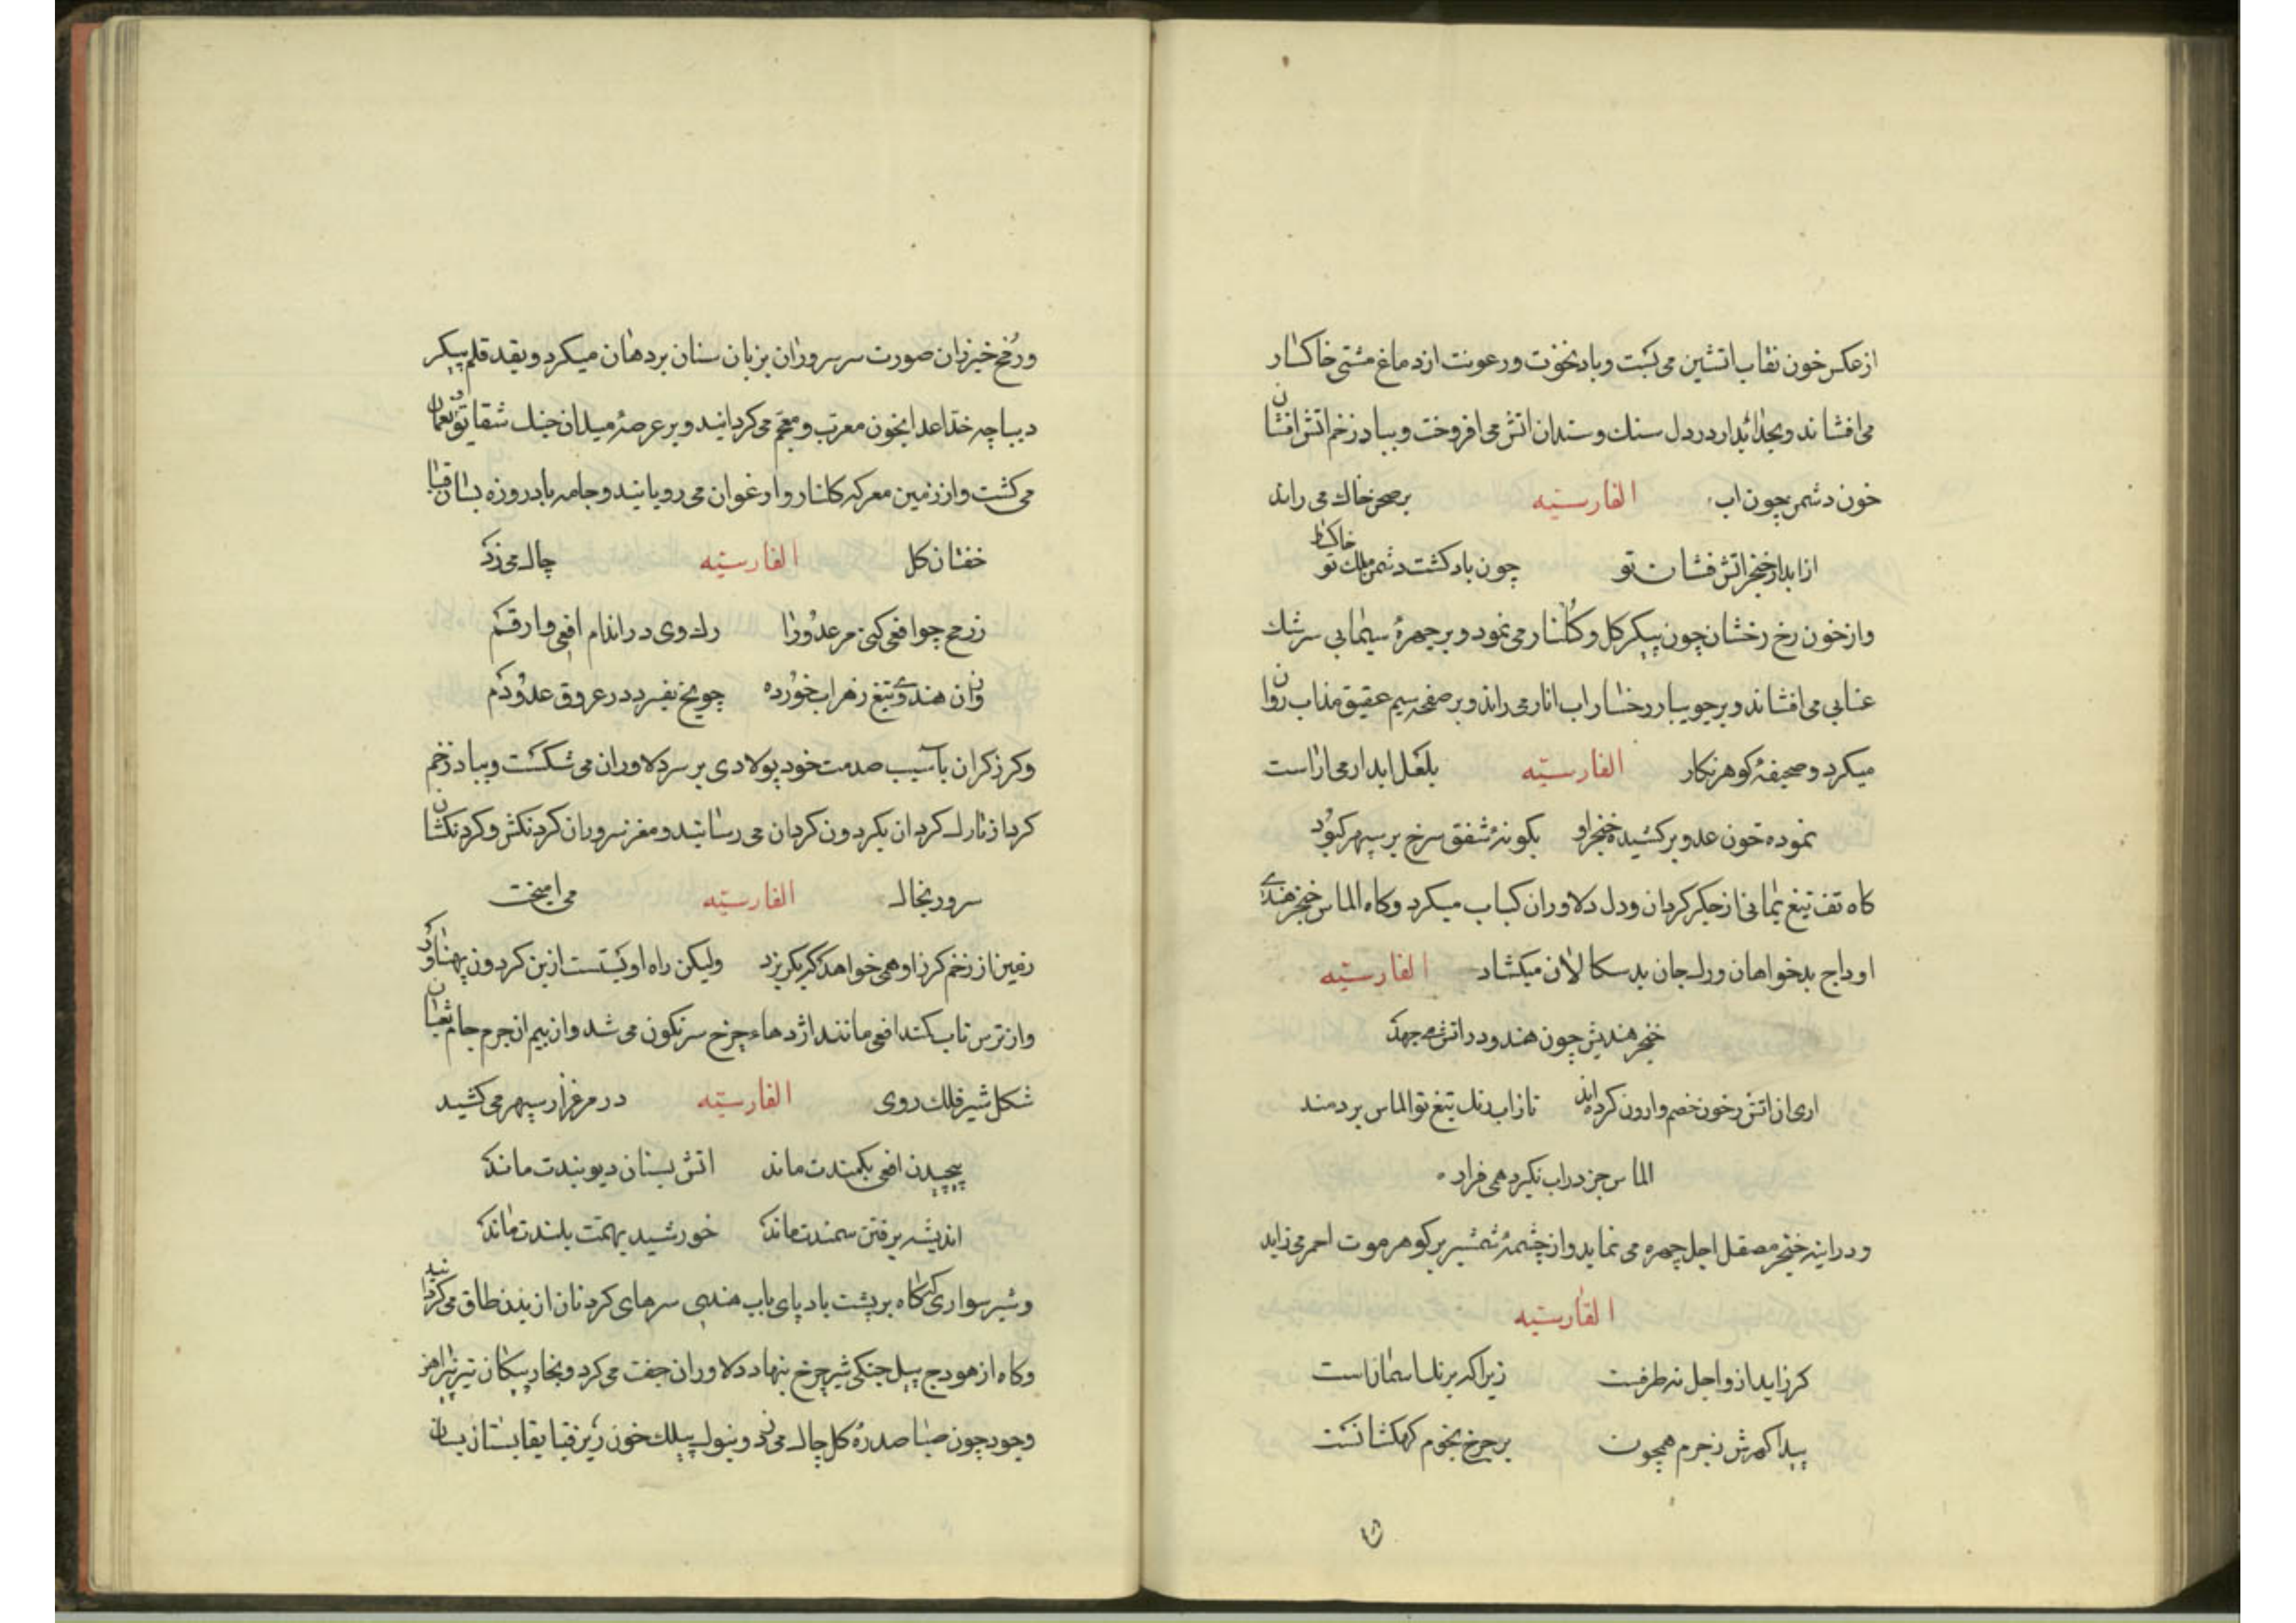 ازعکس خون نقاب اتشین می بست و باد نخوت ورعونت ازدماغ مشتی خاکسار
می افشاند وبحد ابدار در دل سنك وسندان اتش می افروخت وبباد زخم اتش افشان
خون دشمن چون اب الفارسیّه برصحن خاك می راند
ازابدار خنجر اتش فشان تو چون باد کشت دشمن ملك تو خاکسار
وازخون رخ رخشان چون پیکر کل و کلنار می نمود و برچهرۀ سیمابی سرشك
عنابی می افشاند وبرجویبار رخسار اب انار می راند وبرصفحه سیم عقیق مذاب روان
میکرد وصحیفۀ کوهرنکار الفارسیّه بلعل ابدار می اراست
نموده خون عدو برکشیده خنجر او بکونۀ شفق سرخ برسپهر کبود
کاه تف تیغ یمانی ازجکر کردان ودل دلاوران کباب میکرد وکاه الماس خنجر هندی
اوداج بدخواهان ورك جان بدسکالان میکشاد الفارسیّه
خنجر هندیش چون هندو در اتش می جهد
اری ان اتش زخون خصم وارون کرده اند تا زاب رنك تیغ تو الماس بردمند
الماس جز دراب نکیرد همی قرار
ودراینه خنجر مصقل اجل چهره می نماید وازچشمۀ شمشیر پرکوهر موت احمر می زاید
الفارسیّه
کرزاید ازو اجل نه طرفست زیراکه برنك اسمانست
پیدا کهرش زجرم همچون برچرخ نجوم کهکشانست
ورمح خیزران صورت سرسروران بزبان سنان بردهان میکرد وبقد قلم پیکر
دیباچه خد اعدا بخون معرب ومعجم می کردانید وبرعرصۀ میدان جنك شقایق نعمان
می کشت واززمین معرکه کلنار وارغوان می رویانید وجامه باد روزه بسان قبا
خفتان کل الفارسیّه چاك می زد
زرمح چوافعی کنی مر عدو را رك وی در اندام افعی وارقم
وزان هندوی تیغ زهراب خورده چو یخ بفسرد در عروق عدو دم
وکرز کران باسیب صدمت خود پولادی برسر دلاوران می شکست وبباد زخم
کرد ازتارك کردان بکردون کردان می رسانید ومغز سروران کردنکش وکردنکشان
سرور بخاك الفارسیّه می امیخت
زمین از زخم کرز او همی خواهد که بکریزد ولیکن راه او بستست ازین کردون پهناور
وازترس تاب کمند افعی مانند اژدهاء چرخ سرنکون می شد وازبیم ان جرم جام ثعبان
شکل شیر فلك روی الفارسیّه درمرغزار سپهر می کشید
پیچیدن افعی بکمندت ماند اتش بسنان دیوبندت ماند
اندیشه برفتن سمندت ماند خورشید بهمت بلندت ماند
وشیر سواری که کاه برپشت باد پای باب هندی سرهای کردنان ازبدن طاق می کردانید
وکاه ازهودج پیل جنکی شیر چرخ بنهاد دلاوران جفت می کرد وبخار پیکان تیز
وجود چون صبا صدرۀ کل چاك می زد وبنوك بیلك خون ریز قبا بقا بستان بسان